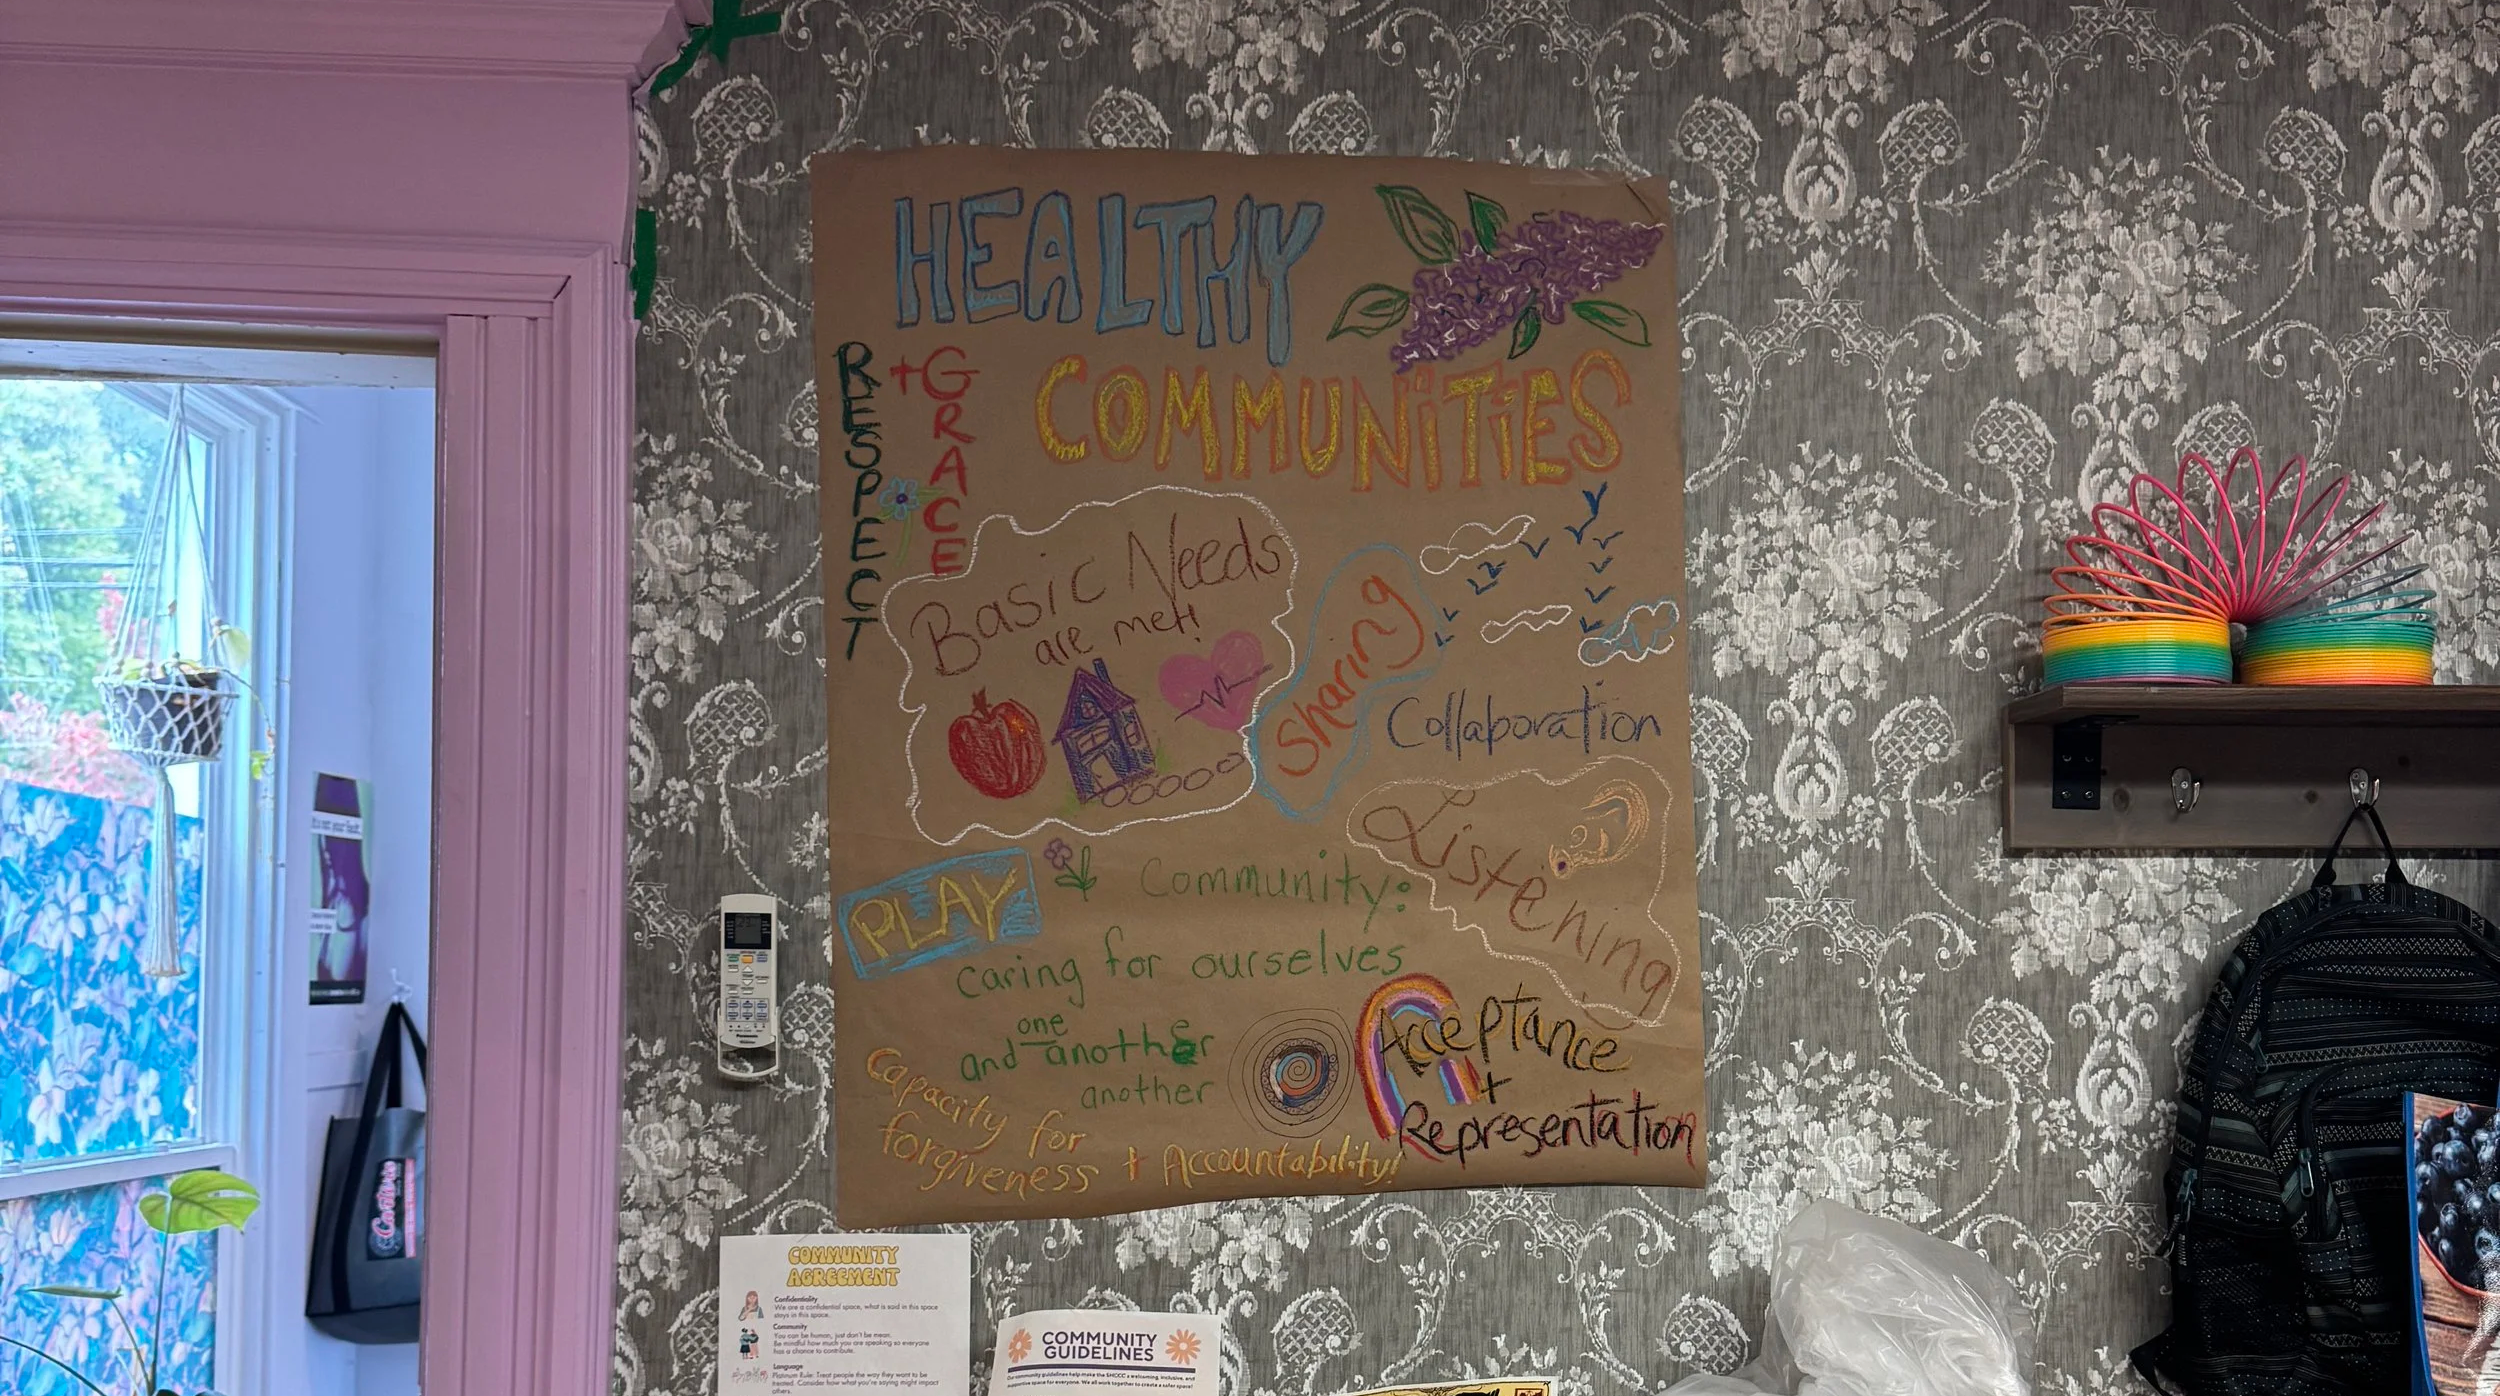 HEALTHY
COMMUNITIES
RESPECT
+GRACE
Basic Needs
are met!
Sharing
Collaboration
Listening
PLAY
Community:
caring for ourselves
one
and another
another
Acceptance
+
Representation
Capacity for
forgiveness + Accountability!
COMMUNITY
AGREEMENT
Confidentiality
We are a confidential space, what is said in this space
stays in this space.
Community
You can be human, just don't be mean.
Be mindful how much you are speaking so everyone
has a chance to contribute.
Language
Platinum Rule: Treat people the way they want to be
treated. Consider how what you're saying might impact
others.
COMMUNITY
GUIDELINES
Our community guidelines help make the SHCCC a welcoming, inclusive, and
supportive space for everyone. We all work together to create a safer space!
Panasonic